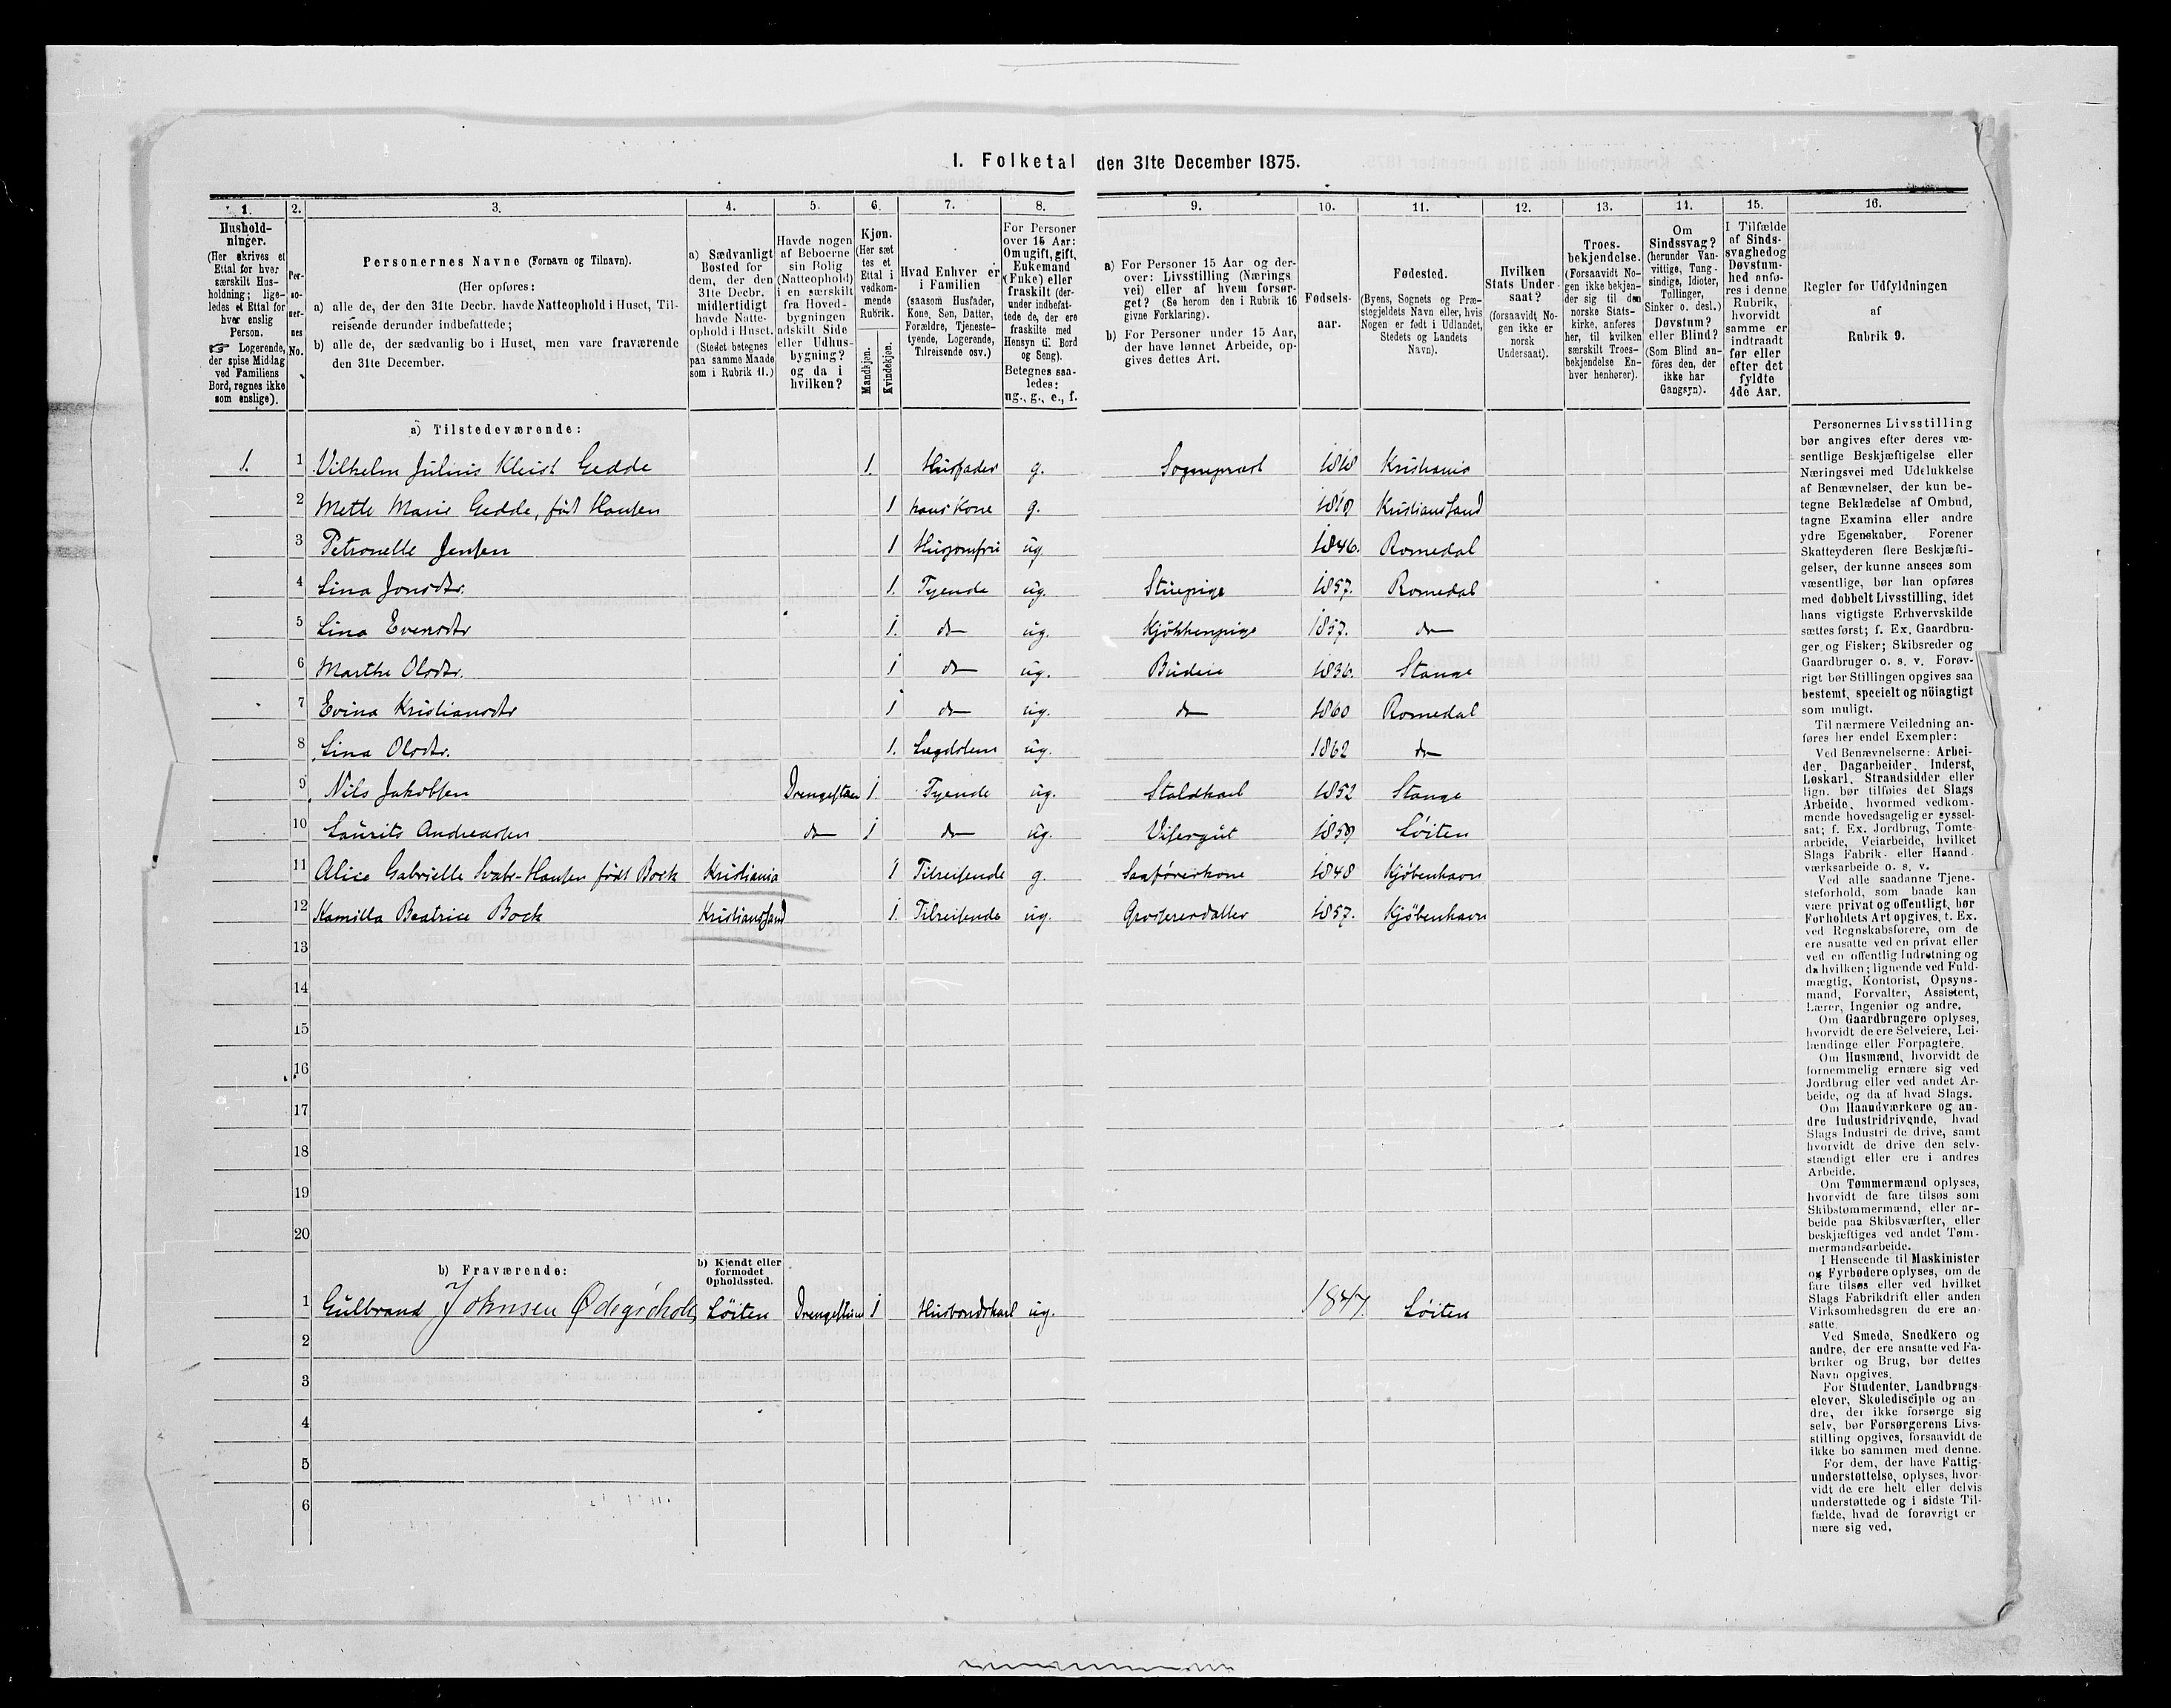 I. Folketal den 31te December 1875.
1. 2. 3. 4. 5. 6. 7. 8. 9. 10. 11. 12. 13. 14. 15. 16.
Hushold-
ninger.
(Her skrives et
Ettal for hver
særskilt Hus-
holdning; lige-
ledes et Ettal for
hver enslig
Person.
☞ Logerende,
der spise Middag
ved Familiens
Bord, regnes ikke
som enslige).
Per-
so-
ner-
nes
No.
Personernes Navne (Fornavn og Tilnavn).
(Her opføres:
a) alle de, der den 31te Decbr. havde Natteophold i Huset, Til-
reisende derunder indbefattede;
b) alle de, der sædvanlig bo i Huset, men vare fraværende
den 31te December.
a) Sædvanligt
Bosted for
dem, der den
31te Decbr.
midlertidigt
havde Natte-
ophold i Huset.
(Stedet betegnes
paa samme Maade
som i Rubrik 11.)
Havde nogen
af Beboerne
sin Bolig
(Natteophold)
i en særskilt
fra Hoved-
bygningen
adskilt Side
eller Udhus-
bygning?
og da i
hvilken?
Kjøn.
(Her sæt
tes et
Ettal i
vedkom-
mende
Rubrik.
Mandkjøn.
Kvindekjøn.
Hvad Enhver er
i Familien
(saasom Husfader,
Kone, Søn, Datter,
Forældre, Tjeneste-
tyende, Logerende,
Tilreisende osv.)
For Personer
over 15 Aar:
Om ugift, gift,
Enkemand
(Enke) eller
fraskilt (der-
under indbefat-
tede de, der ere
fraskilte med
Hensyn til Bord
og Seng).
Betegnes saa-
ledes:
ug., g., e., f.
a) For Personer 15 Aar og der-
over: Livsstilling (Nærings
vei) eller af hvem forsør-
get? (Se herom den i Rubrik 16
givne Forklaring).
b) For Personer under 15 Aar,
der have lønnet Arbeide, op-
gives dettes Art.
Fødsels-
aar.
Fødested.
(Byens, Sognets og Præ-
stegjeldets Navn eller, hvis
Nogen er født i Udlandet,
Stedets og Landets
Navn).
Hvilken
Stats Under-
saat?
(forsaavidt No-
gen ikke er
norsk
Undersaat).
Troes-
bekjendelse.
(Forsaavidt No-
gen ikke bekjen-
der sig til den
norske Stats-
kirke, anføres
her, til hvilken
særskilt Troes-
bekjendelse En-
hver henhører).
Om
Sindssvag?
(herunder Van-
vittige, Tung-
sindige, Idioter,
Tullinger,
Sinker o. desl.)
Døvstum?
eller Blind?
(Som Blind an-
føres den, der
ikke har
Gangsyn).
I Tilfælde
af Sinds-
svaghed og
Døvstum-
hed anfø-
res i denne
Rubrik,
hvorvidt
samme er
indtraadt
før eller
efter det
fyldte
4de Aar.
Regler før Udfyldningen
af
Rubrik 9.
a) Tilstedeværende:
1. 1 Vilhelm Julius Kleist Gedde 1. Husfader g. Sogneprest 1818 Kristiania
2 Mette Marie Gedde, født Hansen 1 hans Kone g. 1819 Kristianssand
3 Petronelle Jensen 1 Husjomfru ug 1846. Romedal
4 Lina Jonsdtr. 1. Tyende ug. Stuepige 1857. Romedal
5 Lina Evensdtr 1. do ug. Kjøkkenpige 1857. do
6 Marthe Olsdtr. 1 do ug. Budeie 1836. Stange
7 Evina Kristiansdtr 1 do ug. do 1860 Romedal
8 Lina Olsdtr. 1. Lægdslem ug. 1862 do
9 Nils Jakobsen Drengestuen 1. Tyende ug. Staldkarl 1852 Stange
10 Laurits Andreassen do 1 do ug. Visergut 1859 Løiten
11 Alice Gabrielle Svabe-Hansen født Bock Kristiania 1 Tilreisende g. Sagførerkone 1848 Kjøbenhavn
12 Kamilla Beatrice Bock Kristianssand 1. Tilreisende ug. Grosererdatter 1857. Kjøbenhavn
13
14
15
16
17
18
19
20
b) Fraværende:
b) Kjendt eller
formodet
Opholdssted.
1 Gulbrand Johnsen Løiten Drengestuen 1 Husbondskarl ug. 1847. Løiten
2
3
4
5
6
Personernes Livsstilling
bør angives efter deres væ-
sentlige Beskjæftigelse eller
Næringsvei med Udelukkelse
af Benævnelser, der kun be-
tegne Beklædelse af Ombud,
tagne Examina eller andre
ydre Egenskaber. Forener
Skatteyderen flere Beskjæfti-
gelser, der kunne ansees som
væsentlige, bør han opføres
med dobbelt Livsstilling, idet
hans vigtigste Erhvervskilde
sættes først; f. Ex. Gaardbru-
ger og Fisker; Skibsreder og
Gaardbruger o. s. v. Forøv-
rigt bør Stillingen opgives saa
bestemt, specielt og nöiagtigt
som muligt.
Til nærmere Veiledning an-
føres her endel Exempler:
Ved Benævnelserne: Arbei-
der, Dagarbeider, Inderst,
Løskarl, Strandsidder eller
lign. bør tilføies det Slags
Arbeide, hvormed vedkom-
mende hovedsagelig er syssel-
sat; f. Ex. Jordbrug, Tomte-
arbeide, Veiarbeide, hvilket
Slags Fabrik- eller Haand-
værksarbeide o. s. v.
Ved alle saadanne Tjene-
steforhold, som baade kan
være privat og offentligt, bør
Forholdets Art opgives, t. Ex.
ved Regnskabsførere, om de
ere ansatte ved en privat eller
ved en offentlig Indretning og
da hvilken; lignende ved Fuld-
mægtig, Kontorist, Opsyns-
mand, Forvalter, Assistent,
Lærer, Ingeniør og andre.
Om Gaardbrugere oplyses,
hvorvidt de ere Selveiere, Lei-
lændinge eller Forpagtere.
Om Husmænd, hvorvidt de
fornemmelig ernære sig ved
Jordbrug eller ved andet Ar-
beide, og da af hvad Slags.
Om Haandværkere og an-
dre Industridrivende, hvad
Slags Industri de drive, samt
hvorvidt de drive den selv-
stændigt eller ere i andres
Arbeide.
Om Tømmermænd oplyses,
hvorvidt de fare tilsøs som
Skibstømmermænd, eller ar-
beide paa Skibsværfter, eller
beskjæftiges ved andet Tøm-
mermandsarbeide.
I Henseende til Maskinister
og Fyrbødere oplyses, om de
fare tilsøs eller ved hvilket
Slags Fabrikdrift eller anden
Virksomhedsgren de ere an-
satte.
Ved Smede, Snedkere og
andre, der ere ansatte ved Fa-
briker og Brug, bør dettes
Navn opgives.
For Studenter, Landbrugs-
elever, Skoledisciple og an
dre, der ikke forsørge sig
selv, bør Forsørgerens Livs-
stilling opgives, forsaavidt de
ikke bo sammen med denne.
For dem, der have Fattig-
understøttelse, oplyses, hvor-
vidt de ere helt eller delvis
understøttede og i sidste Til-
fælde, hvad de forøvrigt er
nære sig ved.